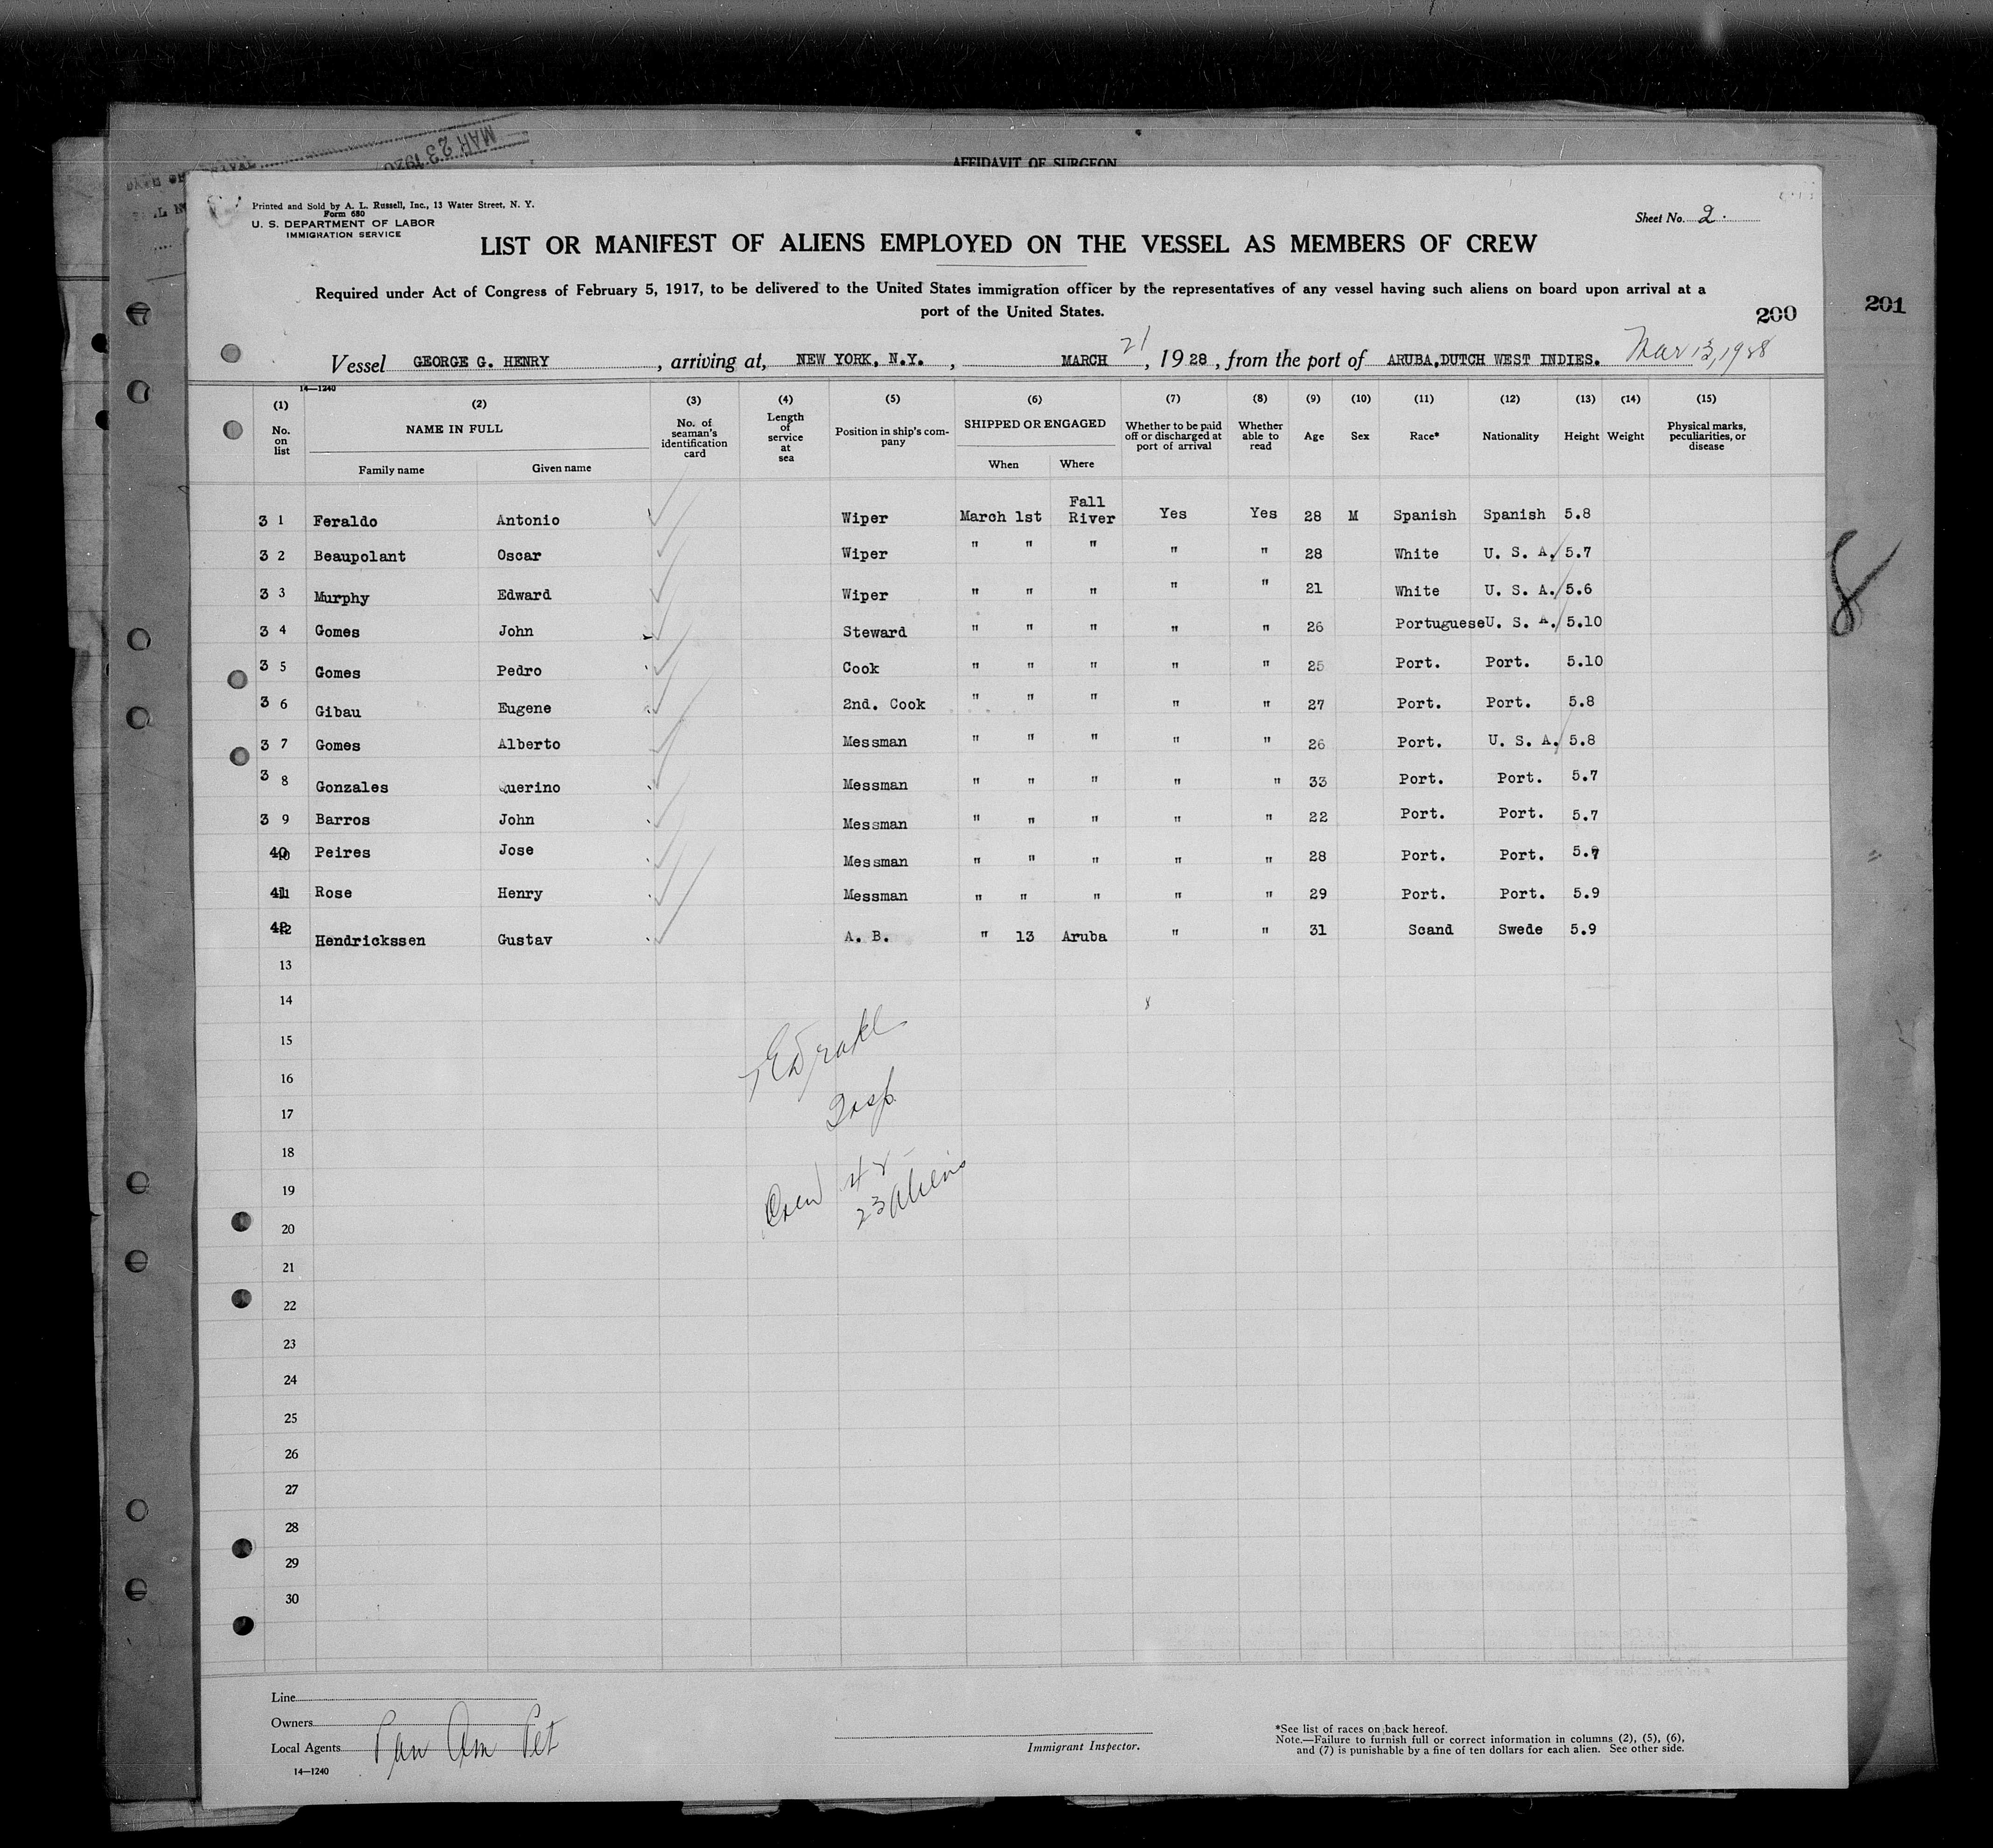 MAR 23 1928
AFFIDAVIT OF SURGEON
Printed and Sold by A. L. Russell, Inc., 13 Water Street, N. Y.
Form 680
U. S. DEPARTMENT OF LABOR
IMMIGRATION SERVICE
Sheet No. 2.
LIST OR MANIFEST OF ALIENS EMPLOYED ON THE VESSEL AS MEMBERS OF CREW
Required under Act of Congress of February 5, 1917, to be delivered to the United States immigration officer by the representatives of any vessel having such aliens on board upon arrival at a
port of the United States.
200
201
Vessel GEORGE G. HENRY, arriving at, NEW YORK, N.Y., MARCH 21, 1928, from the port of ARUBA, DUTCH WEST INDIES. Mar 13, 1928
14—1240
(1) (2) (3) (4) (5) (6) (7) (8) (9) (10) (11) (12) (13) (14) (15)
No. on list NAME IN FULL Family name Given name No. of seaman's identification card Length of service at sea Position in ship's company SHIPPED OR ENGAGED When Where Whether to be paid off or discharged at port of arrival Whether able to read Age Sex Race* Nationality Height Weight Physical marks, peculiarities, or disease
3 1 Feraldo Antonio Wiper March 1st Fall River Yes Yes 28 M Spanish Spanish 5.8
3 2 Beaupolant Oscar Wiper " " " " " 28 White U. S. A. 5.7
3 3 Murphy Edward Wiper " " " " " 21 White U. S. A. 5.6
3 4 Gomes John Steward " " " " " 26 Portuguese U. S. A. 5.10
3 5 Gomes Pedro Cook " " " " " 25 Port. Port. 5.10
3 6 Gibau Eugene 2nd. Cook " " " " " 27 Port. Port. 5.8
3 7 Gomes Alberto Messman " " " " " 26 Port. U. S. A. 5.8
3 8 Gonzales Querino Messman " " " " " 33 Port. Port. 5.7
3 9 Barros John Messman " " " " " 22 Port. Port. 5.7
40 Peires Jose Messman " " " " " 28 Port. Port. 5.7
41 Rose Henry Messman " " " " " 29 Port. Port. 5.9
42 Hendrickssen Gustav A. B. " 13 Aruba " " 31 Scand Swede 5.9
13
14
15
16
17
18
19
20
21
22
23
24
25
26
27
28
29
30
Insp
Crew 42
23 Aliens
8
Line
Owners
Local Agents Pan Am Pet
14—1240
Immigrant Inspector.
*See list of races on back hereof.
Note.—Failure to furnish full or correct information in columns (2), (5), (6),
and (7) is punishable by a fine of ten dollars for each alien. See other side.